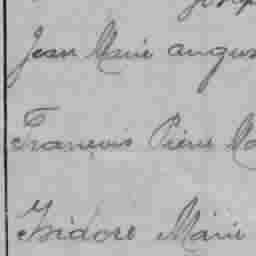 Jean Marie augus
François Pierre
Isidore Marie